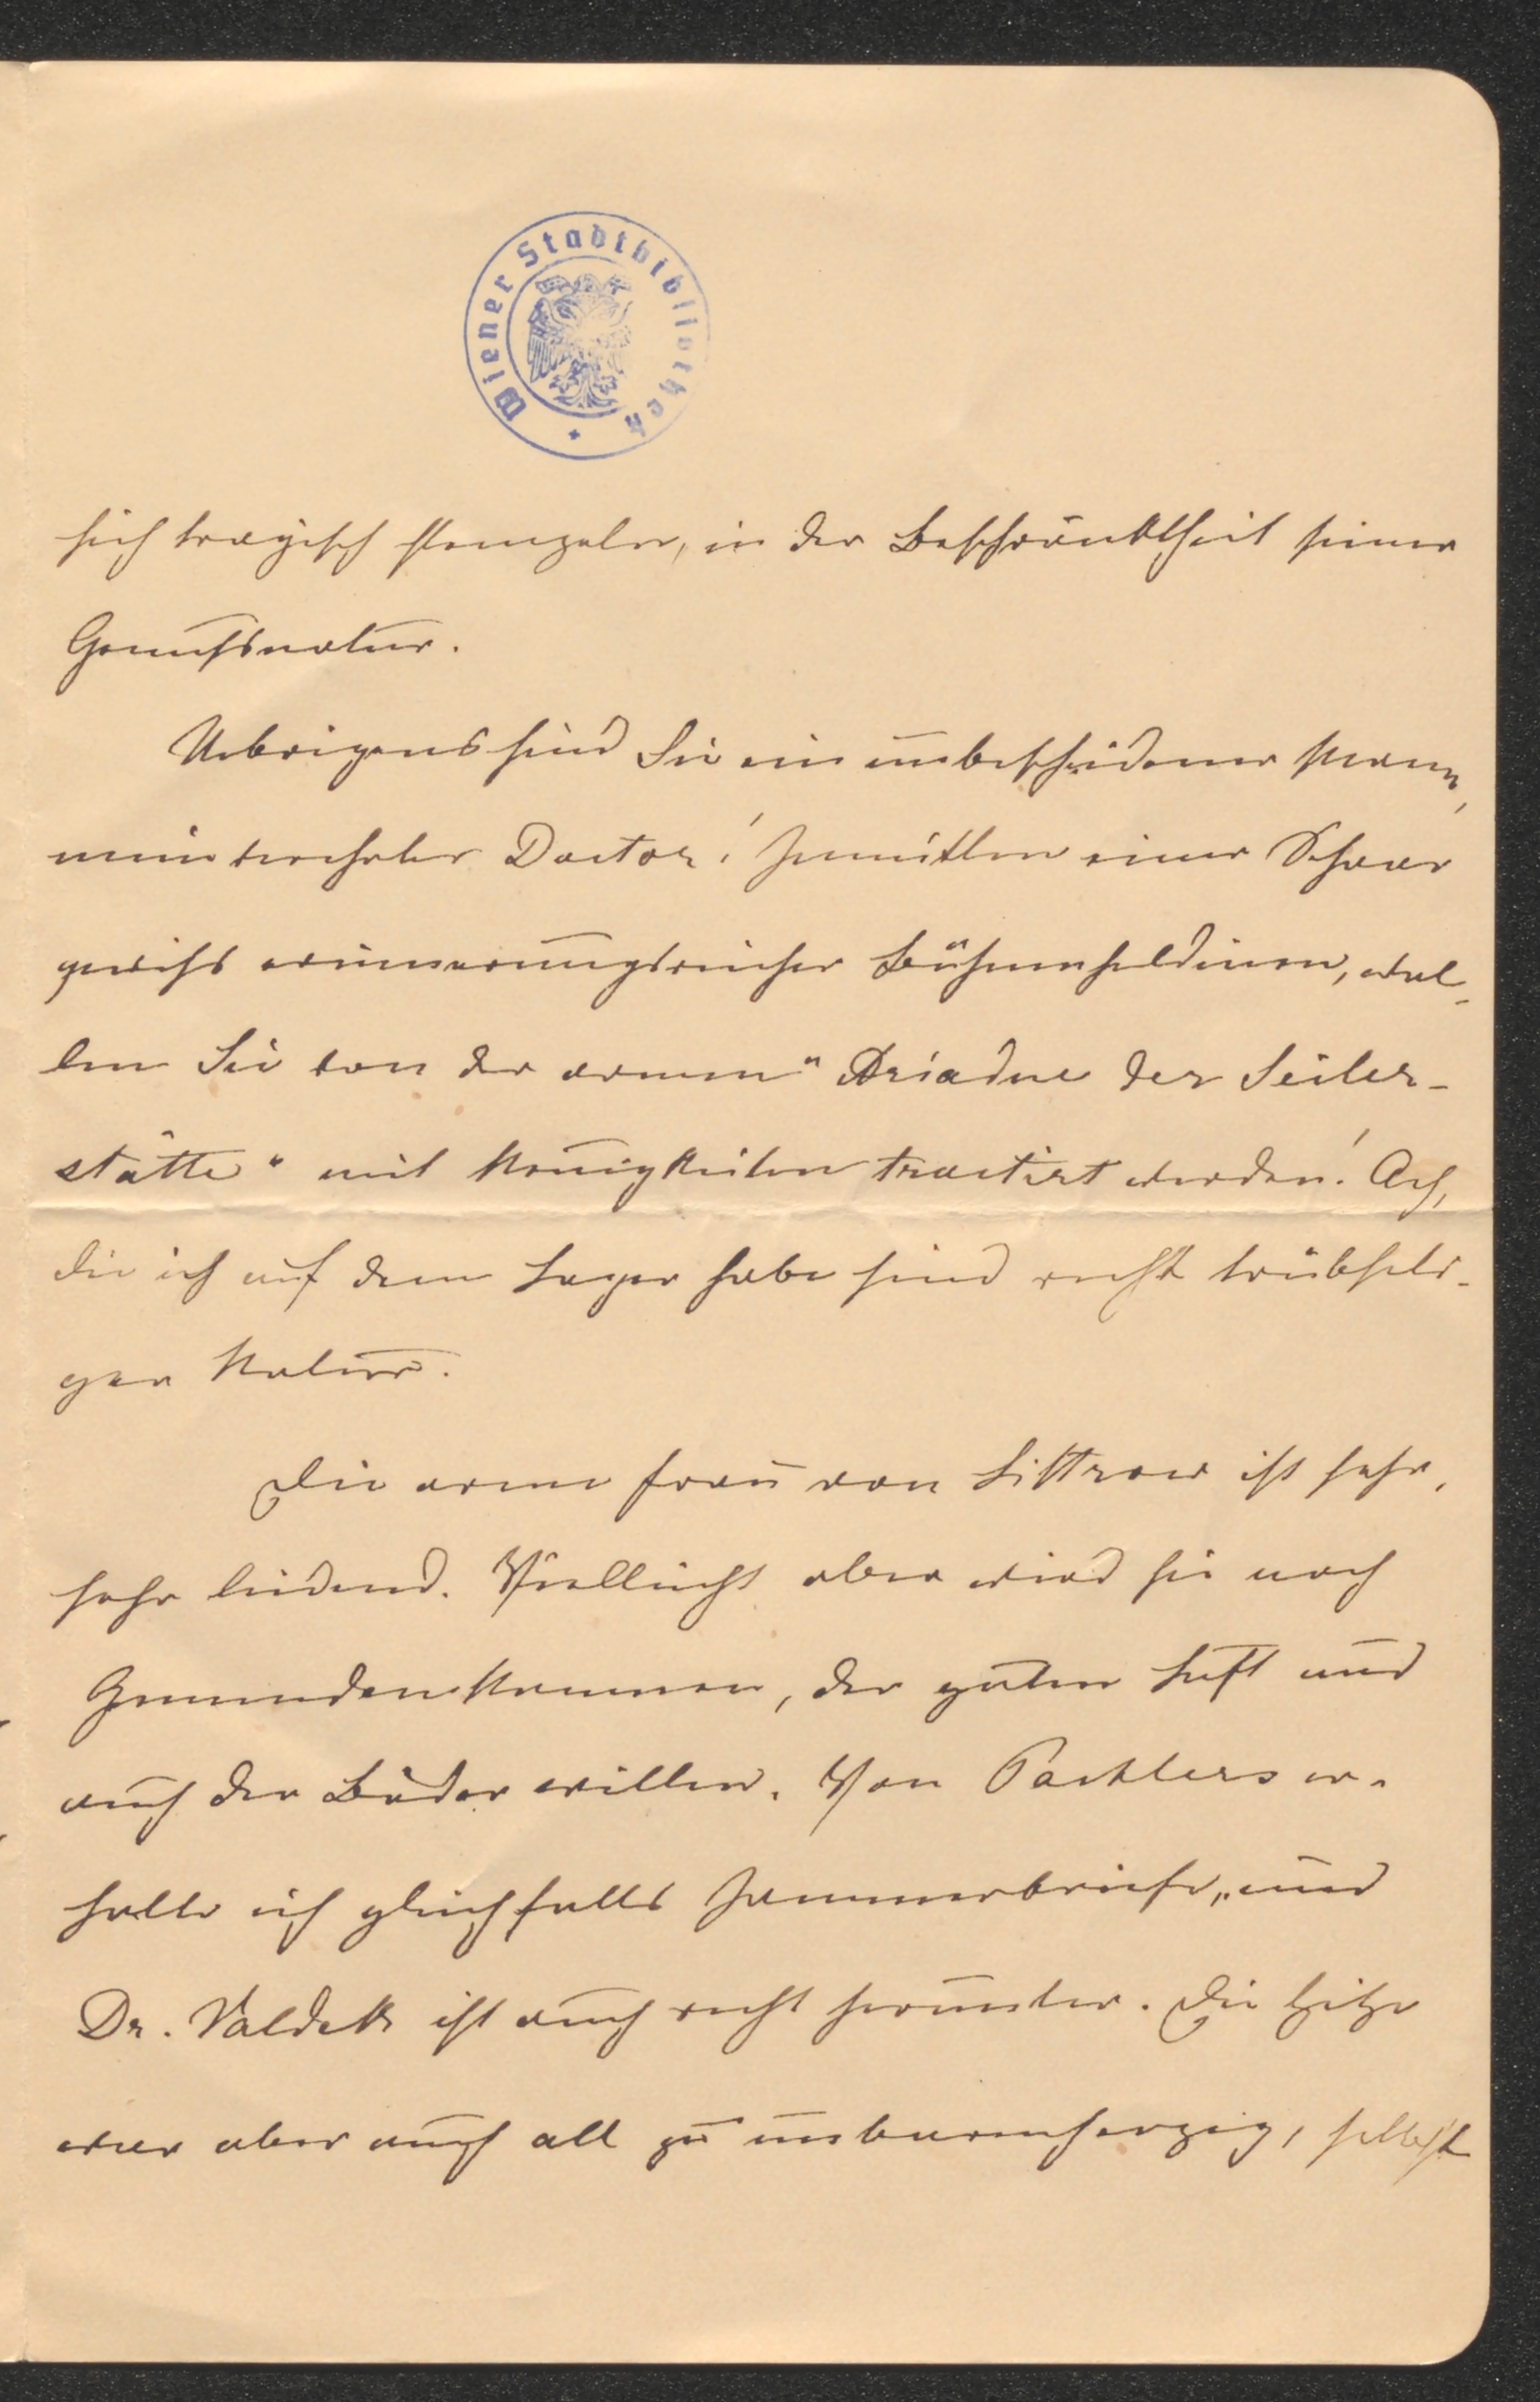 Wiener Stadtbibliothek
sich tragisch stempeln, in der Beschränktheit seiner
Genußnatur.
Uebrigens sind Sie ein unbescheidener Mann,
mein verehrter Doctor! Inmitten einer Schaar
gewiß erinnerungsreicher Bühnenheldinen, wol-
len Sie von der armen "Ariadne der Seiler-
stätte" mit Neuigkeiten tractirt werden! Ach,
die ich auf dem Lager habe sind recht trübseli-
ger Natur.
Die arme Frau von Littrow ist sehr,
sehr leidend. Vielleicht aber wird sie nach
Gmunden kommen, der guten Luft und
auch der Bäder willen. Von Pachlers er-
halte ich gleichfalls Jammerbriefe, und
Dr. Valdek ist auch recht herunter. Die Hitze
war aber auch all zu unbarmherzig, selbst